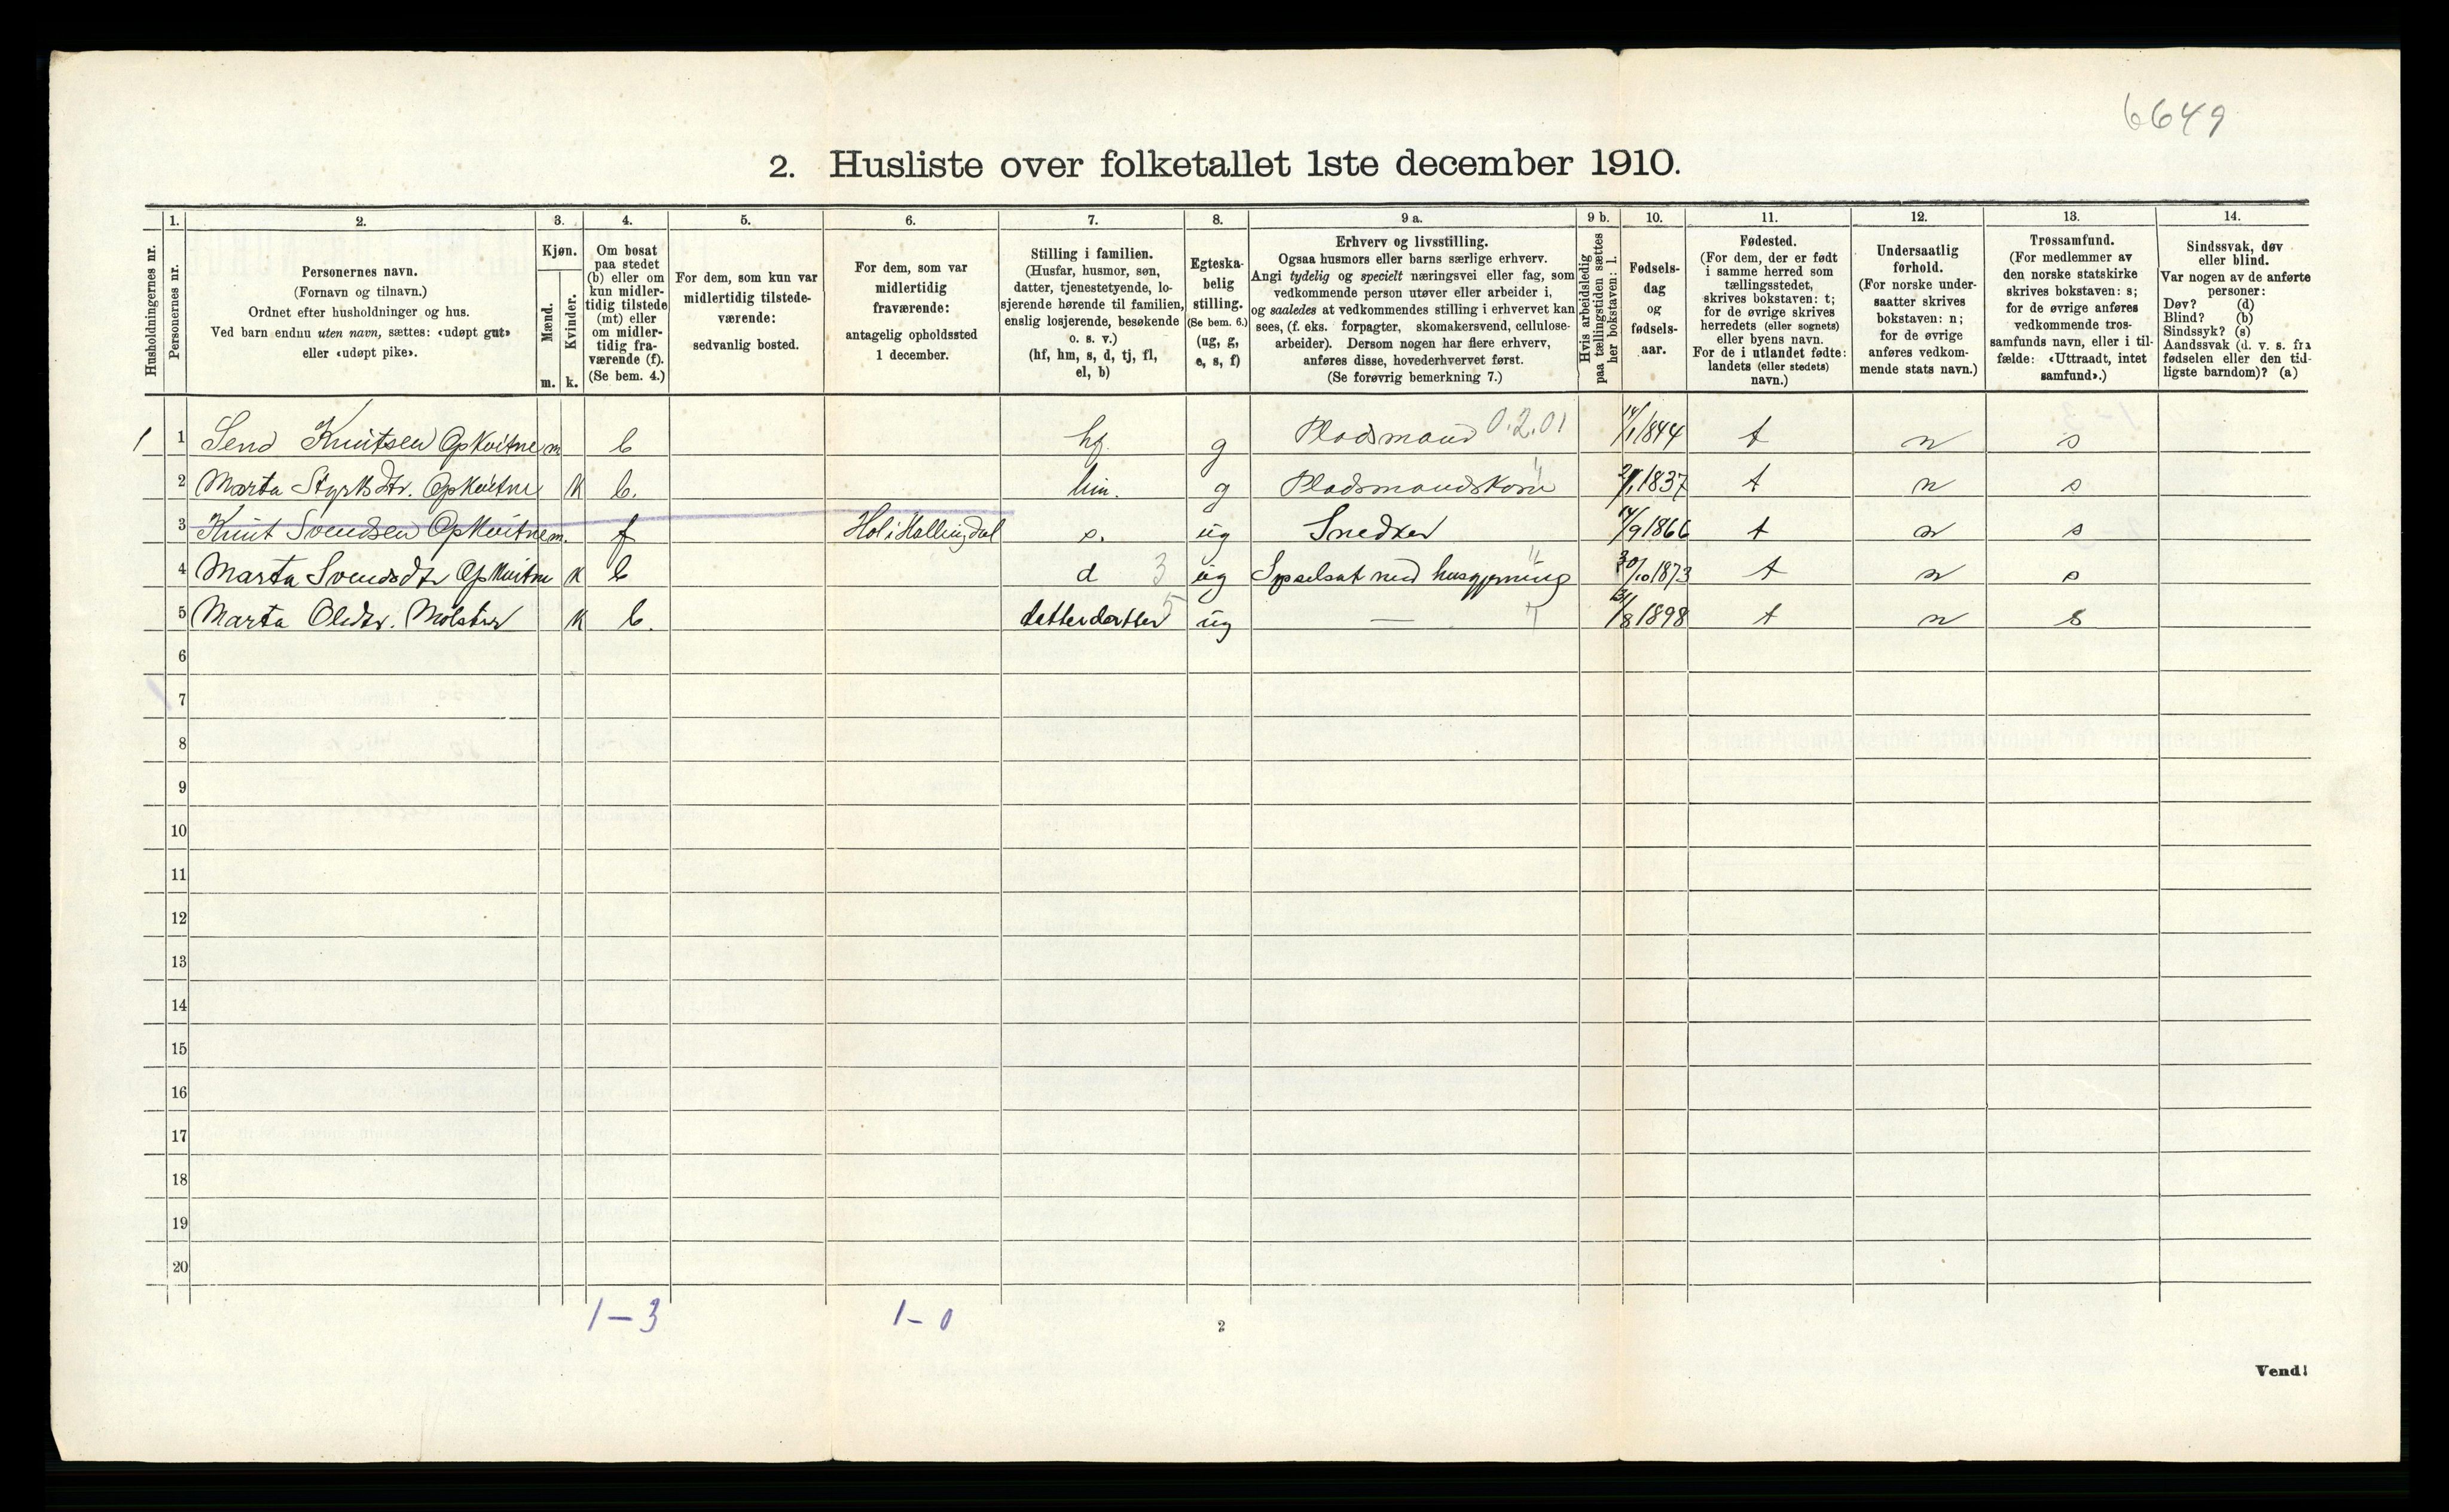 6649
2. Husliste over folketallet 1ste december 1910.
Husholdningernes nr.
1.
Personernes nr.
2.
Personernes navn.
(Fornavn og tilnavn.)
Ordnet efter husholdninger og hus.
Ved barn endnu uten navn, sættes: «udøpt gut»
eller «udøpt pike».
3.
Kjøn.
Mænd.
Kvinder.
m. k.
4.
Om bosat
paa stedet
(b) eller om
kun midler-
tidig tilstede
(mt) eller
om midler-
tidig fra-
værende (f).
(Se bem. 4.)
5.
For dem, som kun var
midlertidig tilstede-
værende:
sedvanlig bosted.
6.
For dem, som var
midlertidig
fraværende:
antagelig opholdssted
1 december.
7.
Stilling i familien.
(Husfar, husmor, søn,
datter, tjenestetyende, lo-
sjerende hørende til familien,
enslig losjerende, besøkende
o. s. v.)
(hf, hm, s, d, tj, fl,
el, b)
8.
Egteska-
belig
stilling.
(Se bem. 6.)
(ug, g,
e, s, f)
9 a.
Erhverv og livsstilling.
Ogsaa husmors eller barns særlige erhverv.
Angi tydelig og specielt næringsvei eller fag, som
vedkommende person utøver eller arbeider i,
og saaledes at vedkommendes stilling i erhvervet kan
sees, (f. eks. forpagter, skomakersvend, cellulose-
arbeider). Dersom nogen har flere erhverv,
anføres disse, hovederhvervet først.
(Se forøvrig bemerkning 7.)
9 b.
Hvis arbeidsledig
paa tællingstiden sættes
her bokstaven: l.
10.
Fødsels-
dag
og
fødsels-
aar.
11.
Fødested.
(For dem, der er født
i samme herred som
tællingsstedet,
skrives bokstaven: t;
for de øvrige skrives
herredets (eller sognets)
eller byens navn.
For de i utlandet fødte:
landets (eller stedets)
navn.)
12.
Undersaatlig
forhold.
(For norske under-
saatter skrives
bokstaven: n;
for de øvrige
anføres vedkom-
mende stats navn.)
13.
Trossamfund.
(For medlemmer av
den norske statskirke
skrives bokstaven: s;
for de øvrige anføres
vedkommende tros-
samfunds navn, eller i til-
fælde: «Uttraadt, intet
samfund».)
14.
Sindssvak, døv
eller blind.
Var nogen av de anførte
personer:
Døv? (d)
Blind? (b)
Sindssyk? (s)
Aandssvak (d. v. s. fra
fødselen eller den tid-
ligste barndom)? (a)
1 1 Send Knutsen Opkvitne m b hf. g Pladsmand 0.2.01 14/1 1844 t n s
2 Marta Styrksdtr. Opkvitne k b. hm. g Pladsmandskone 1837 t n s
3 Knut Svendsen Opkvitne m. f Hol i Hallingdal s. ug Snedker 14/9 1866 t n s
4 Marta Svendsdtr Opkvitne k b d 3 ug Sysselsat med husgjerning 30/10 1873 t n s
5 Marta Olsdtr. Mölster k b. datterdatter 5 ug — /8 1898 t n s
6
7
8
9
10
11
12
13
14
15
16
17
18
19
20
1–3 1–0
2
Vend!